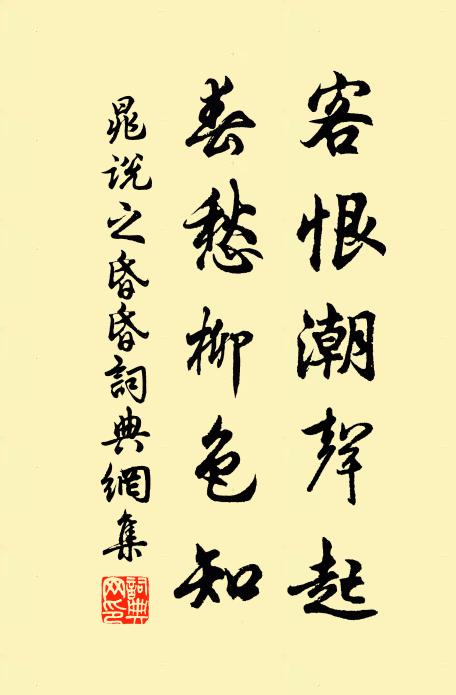 客恨潮聲起
春愁柳色知
晁説之昏昏詞典網集
詞典網印